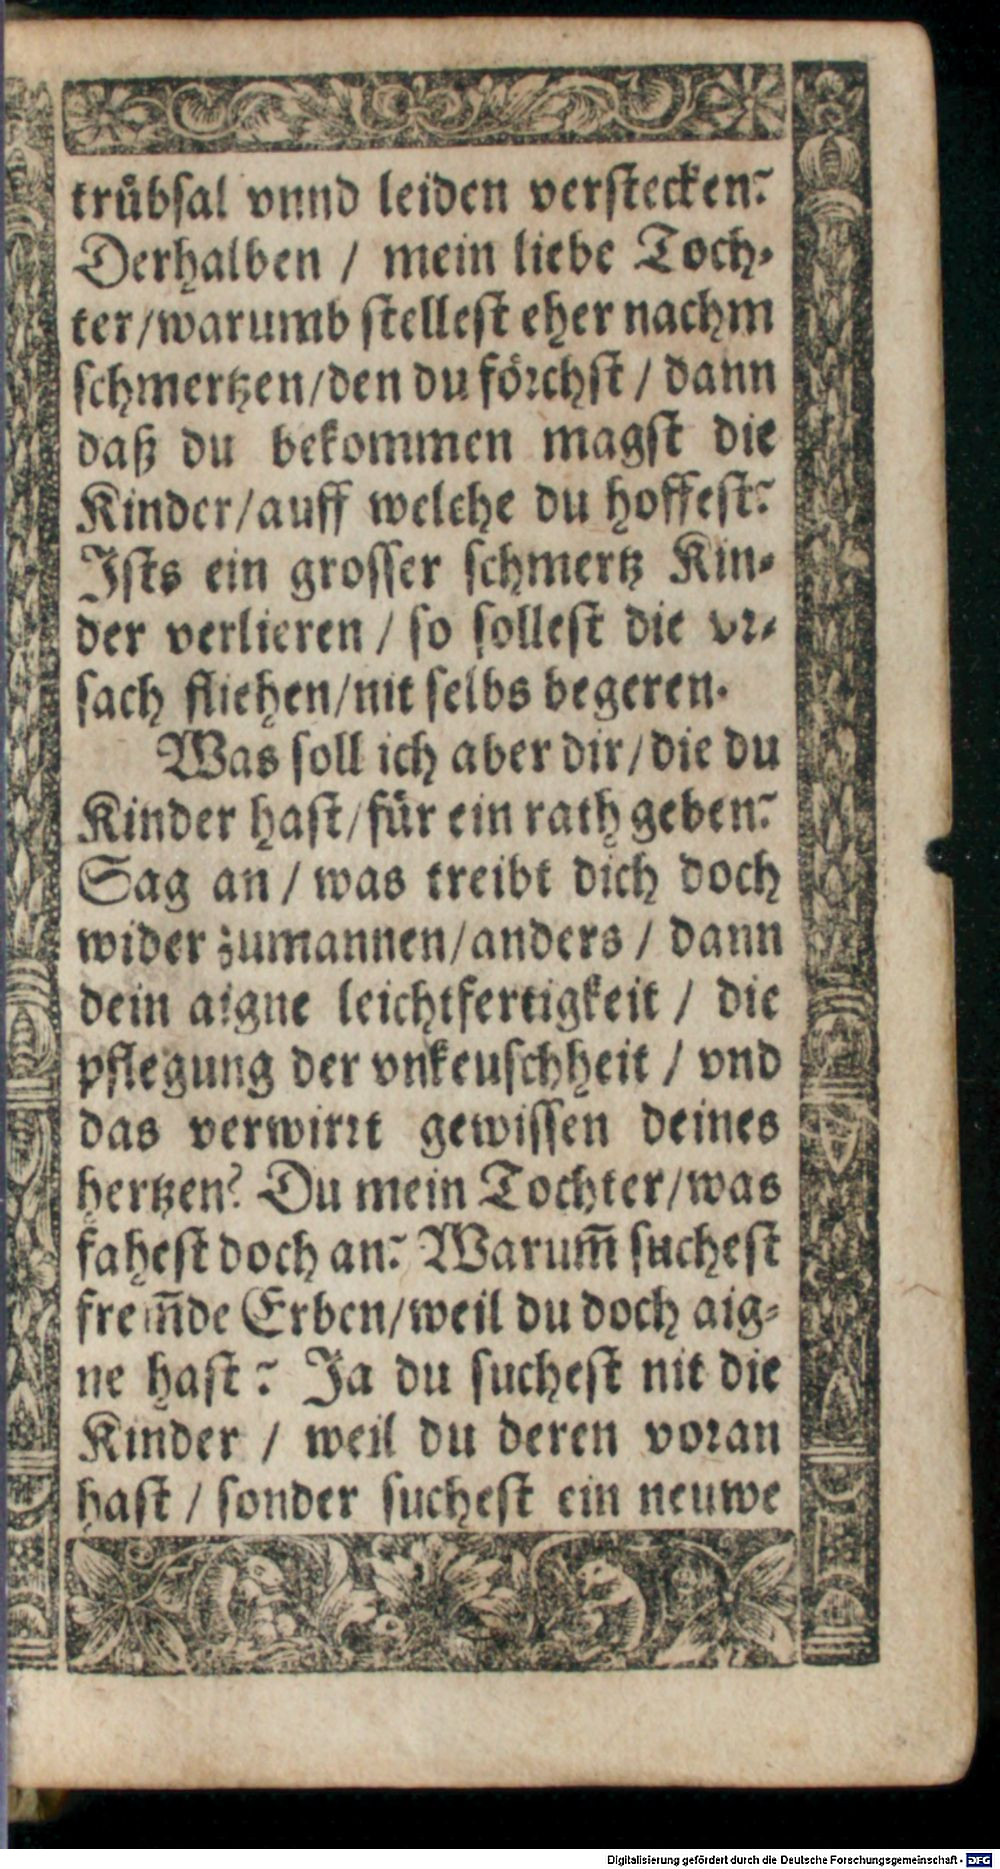 trůbsal vnnd leiden verstecken?
Derhalben / mein liebe Toch-
ter/warumb stellest eher nachm
schmertzen/den du förchst / dann
daß du bekommen magst die
Kinder/auff welche du hoffest?
Ists ein grosser schmertz Kin-
der verlieren / so sollest die vr-
sach fliehen/nit selbs begeren.
Was soll ich aber dir/die du
Kinder hast/für ein rath geben?
Sag an / was treibt dich doch
wider zumannen/anders / dann
dein aigne leichtfertigkeit / die
pflegung der vnkeuschheit / vnd
das verwirrt gewissen deines
hertzen? Du mein Tochter/was
fahest doch an? Warum̃ suchest
frem̃de Erben/weil du doch aig-
ne hast? Ja du suchest nit die
Kinder / weil du deren voran
hast / sonder suchest ein neuwe
Digitalisierung gefördert durch die Deutsche Forschungsgemeinschaft - DFG